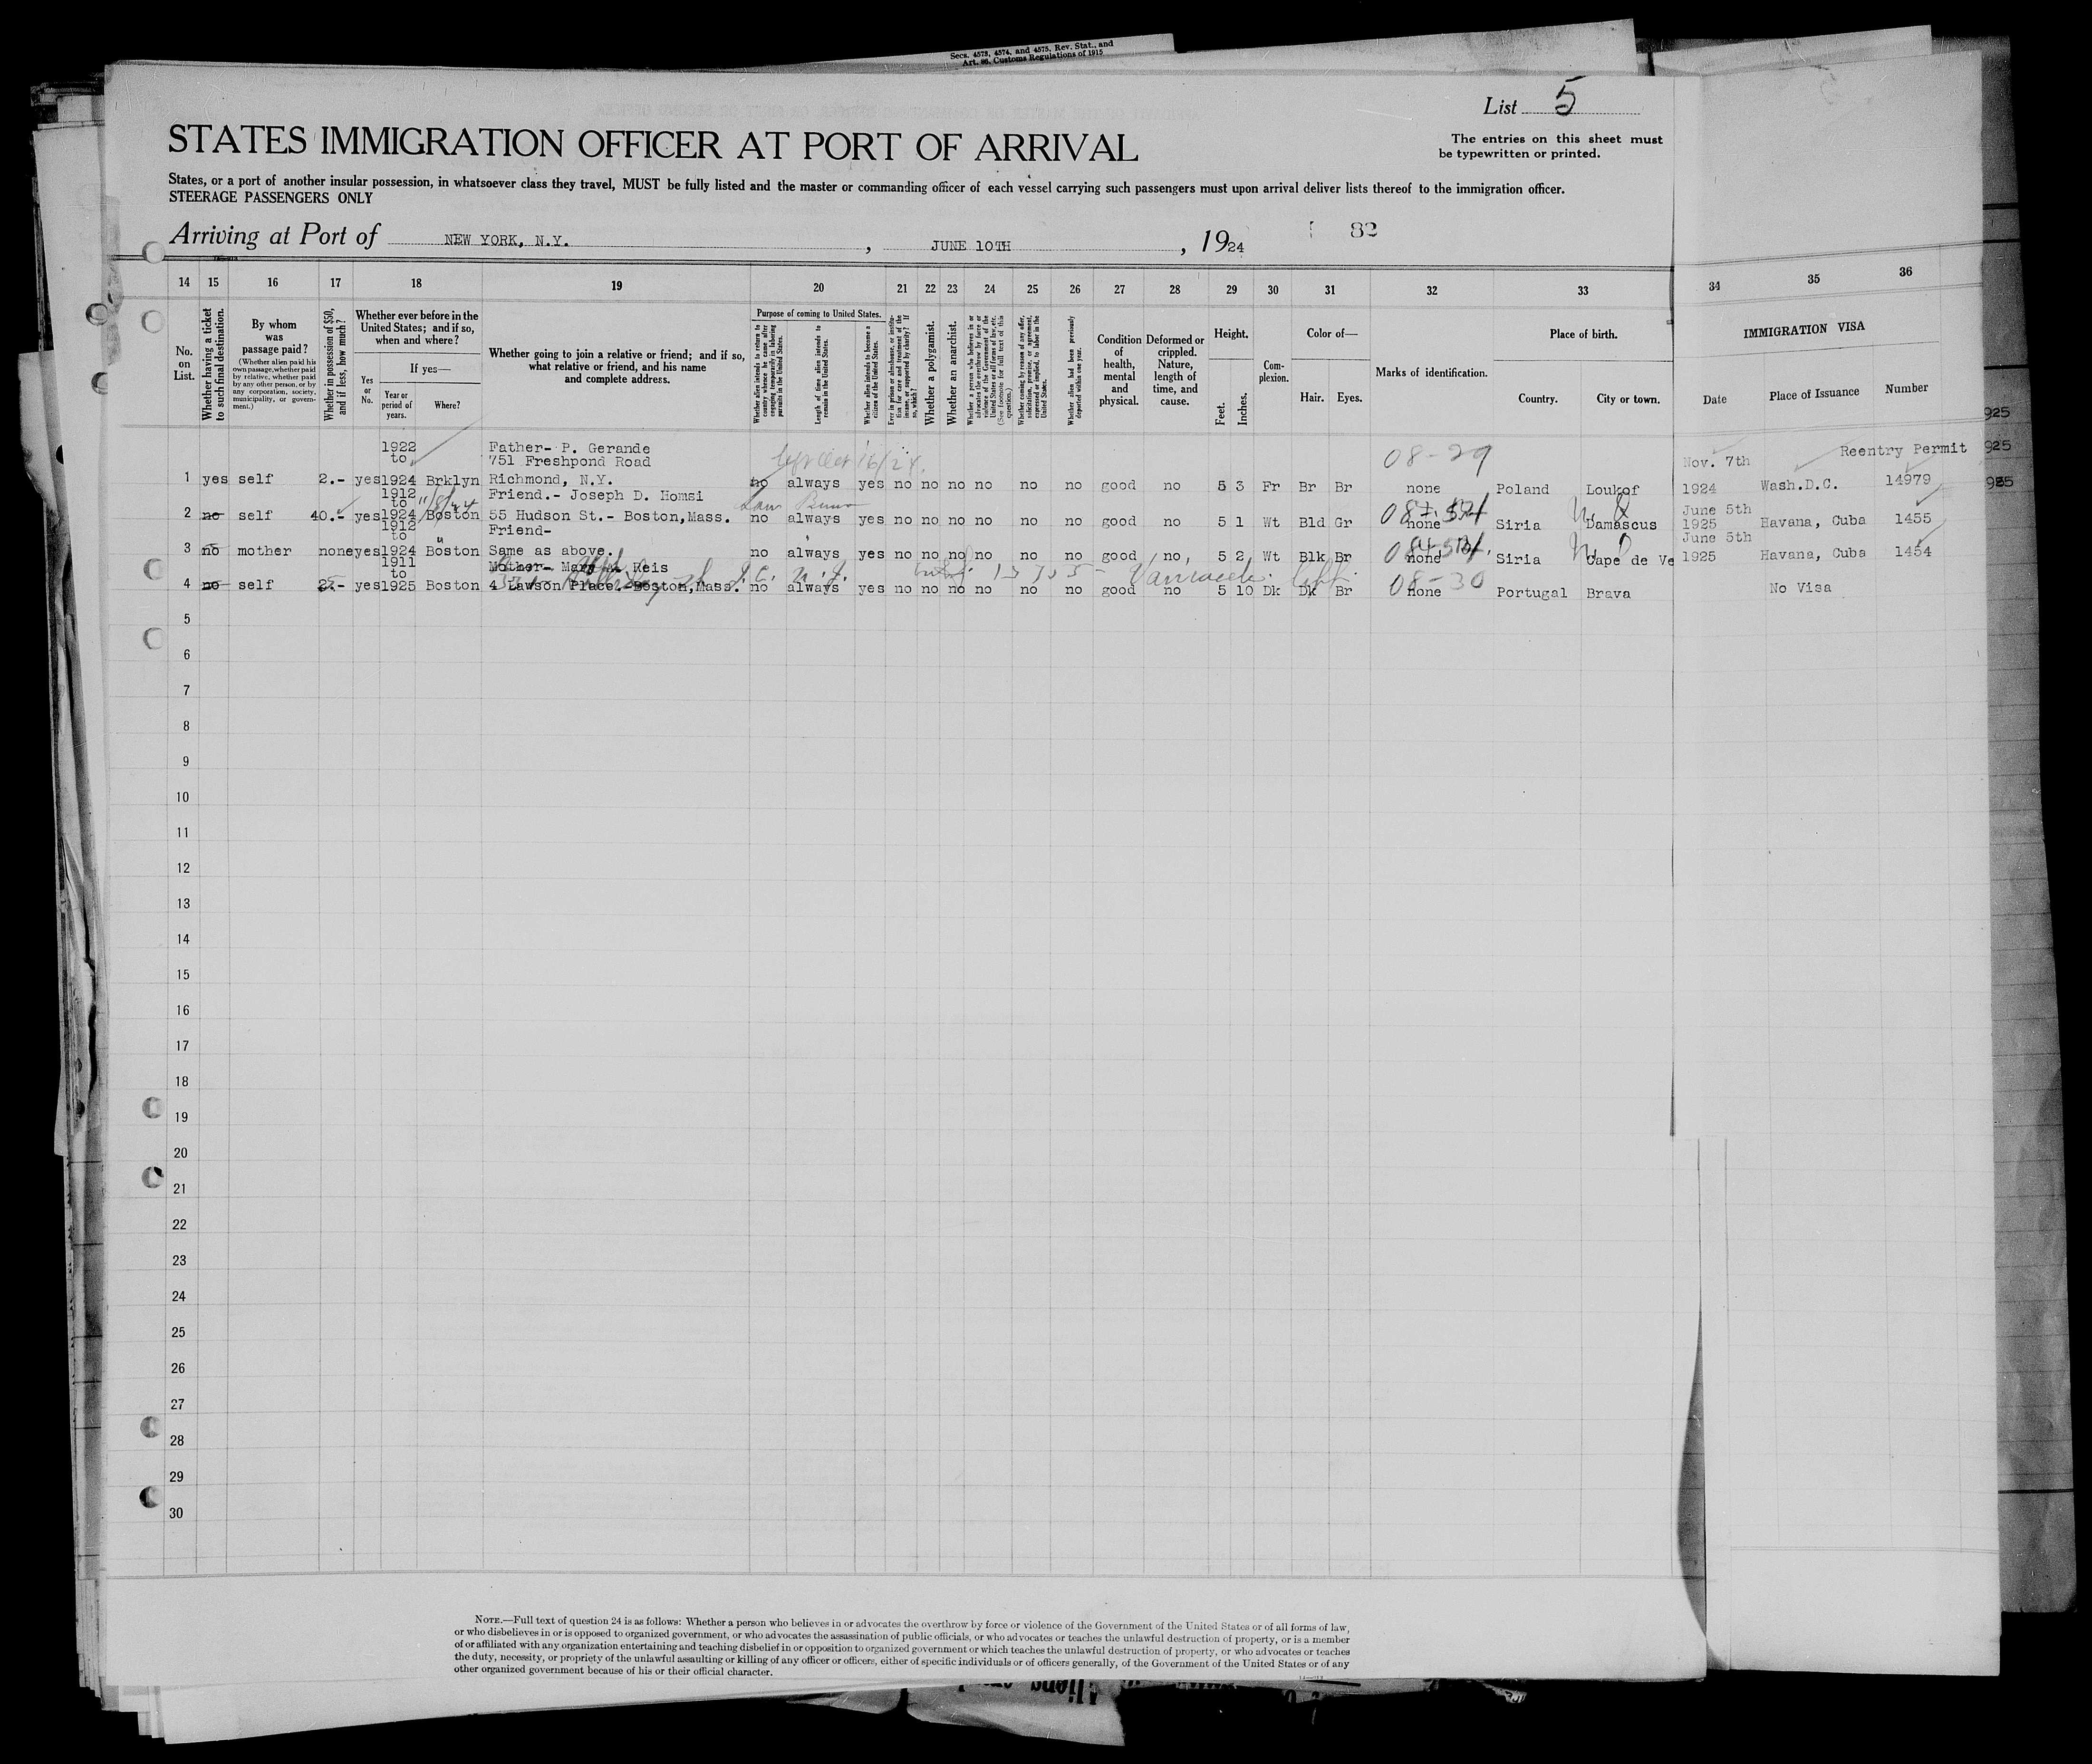 Secs. 4573, 4574, and 4575, Rev. Stat., and
Art. 86, Customs Regulations of 1915
List 5
STATES IMMIGRATION OFFICER AT PORT OF ARRIVAL
The entries on this sheet must
be typewritten or printed.
States, or a port of another insular possession, in whatsoever class they travel, MUST be fully listed and the master or commanding officer of each vessel carrying such passengers must upon arrival deliver lists thereof to the immigration officer.
STEERAGE PASSENGERS ONLY
Arriving at Port of NEW YORK, N.Y. , JUNE 10TH , 1924 82
14 15 16 17 18 19 20 21 22 23 24 25 26 27 28 29 30 31 32 33 34 35 36
No. on List.
Whether having a ticket to such final destination.
By whom was passage paid?
(Whether alien paid his own passage, whether paid by relative, whether paid by any other person, or by any corporation, society, municipality, or government.)
Whether in possession of $50, and if less, how much?
Whether ever before in the United States; and if so, when and where?
Yes or No.
If yes—
Year or period of years.
Where?
Whether going to join a relative or friend; and if so, what relative or friend, and his name and complete address.
Purpose of coming to United States.
Whether alien intends to return to country whence he came after engaging temporarily in laboring pursuits in the United States.
Length of time alien intends to remain in the United States.
Whether alien intends to become a citizen of the United States.
Ever in prison or almshouse, or institution for care and treatment of the insane, or supported by charity? If so, which?
Whether a polygamist.
Whether an anarchist.
Whether a person who believes in or advocates the overthrow by force or violence of the Government of the United States or all forms of law, etc. (See footnote for full text of this question.)
Whether coming by reason of any offer, solicitation, promise, or agreement, expressed or implied, to labor in the United States.
Whether alien had been previously deported within one year.
Condition of health, mental and physical.
Deformed or crippled. Nature, length of time, and cause.
Height.
Feet.
Inches.
Complexion.
Color of—
Hair. Eyes.
Marks of identification.
Place of birth.
Country. City or town.
IMMIGRATION VISA
Date Place of Issuance Number
925
1922 Father- P. Gerande 08-29 Reentry Permit 925
to 751 Freshpond Road Nov. 7th
1 yes self 2.- yes 1924 Brklyn Richmond, N.Y. no always yes no no no no no no good no 5 3 Fr Br Br none Poland Loukof 1924 Wash.D.C. 14979
1912 Friend.- Joseph D. Homsi
to June 5th
2 no self 40.- yes 1924 Boston 55 Hudson St.- Boston,Mass. no always yes no no no no no no good no 5 1 Wt Bld Gr none Siria Damascus 1925 Havana, Cuba 1455
1912 Friend-
to June 5th
3 no mother none yes 1924 Boston Same as above. no always yes no no no no no no good no, 5 2 Wt Blk Br none Siria Cape de Ve 1925 Havana, Cuba 1454
1911 Mother- Reis
to 08-30
4 no self yes 1925 Boston 4 Lawson Place- Boston,Mass. no always yes no no no no no no good no 5 10 Dk Dk Br none Portugal Brava No Visa
5
6
7
8
9
10
11
12
13
14
15
16
17
18
19
20
21
22
23
24
25
26
27
28
29
30
NOTE.—Full text of question 24 is as follows: Whether a person who believes in or advocates the overthrow by force or violence of the Government of the United States or of all forms of law,
or who disbelieves in or is opposed to organized government, or who advocates the assassination of public officials, or who advocates or teaches the unlawful destruction of property, or is a member
of or affiliated with any organization entertaining and teaching disbelief in or opposition to organized government or which teaches the unlawful destruction of property, or who advocates or teaches
the duty, necessity, or propriety of the unlawful assaulting or killing of any officer or officers, either of specific individuals or of officers generally, of the Government of the United States or of any
other organized government because of his or their official character.